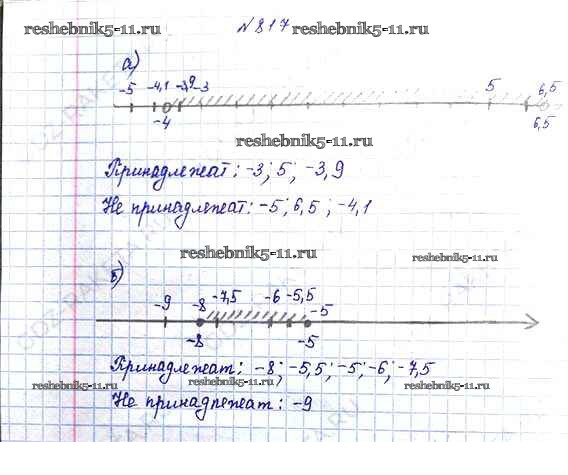 reshebnik5-11.ru
№ 817
reshebnik5-11.ru
а)
-5 -4,1 -3,9 -3 5 6,5
-4 6,5
reshebnik5-11.ru
Принадлежат: -3; 5; -3,9
Не принадлежат: -5; 6,5; -4,1
reshebnik5-11.ru
reshebnik5-11.ru
б)
-9 -8 -7,5 -6 -5,5 -5
-8 -5
Принадлежат: -8; -5,5; -5; -6; -7,5
reshebnik5-11.ru reshebnik5-11.ru reshebnik5-11.ru
Не принадлежат: -9